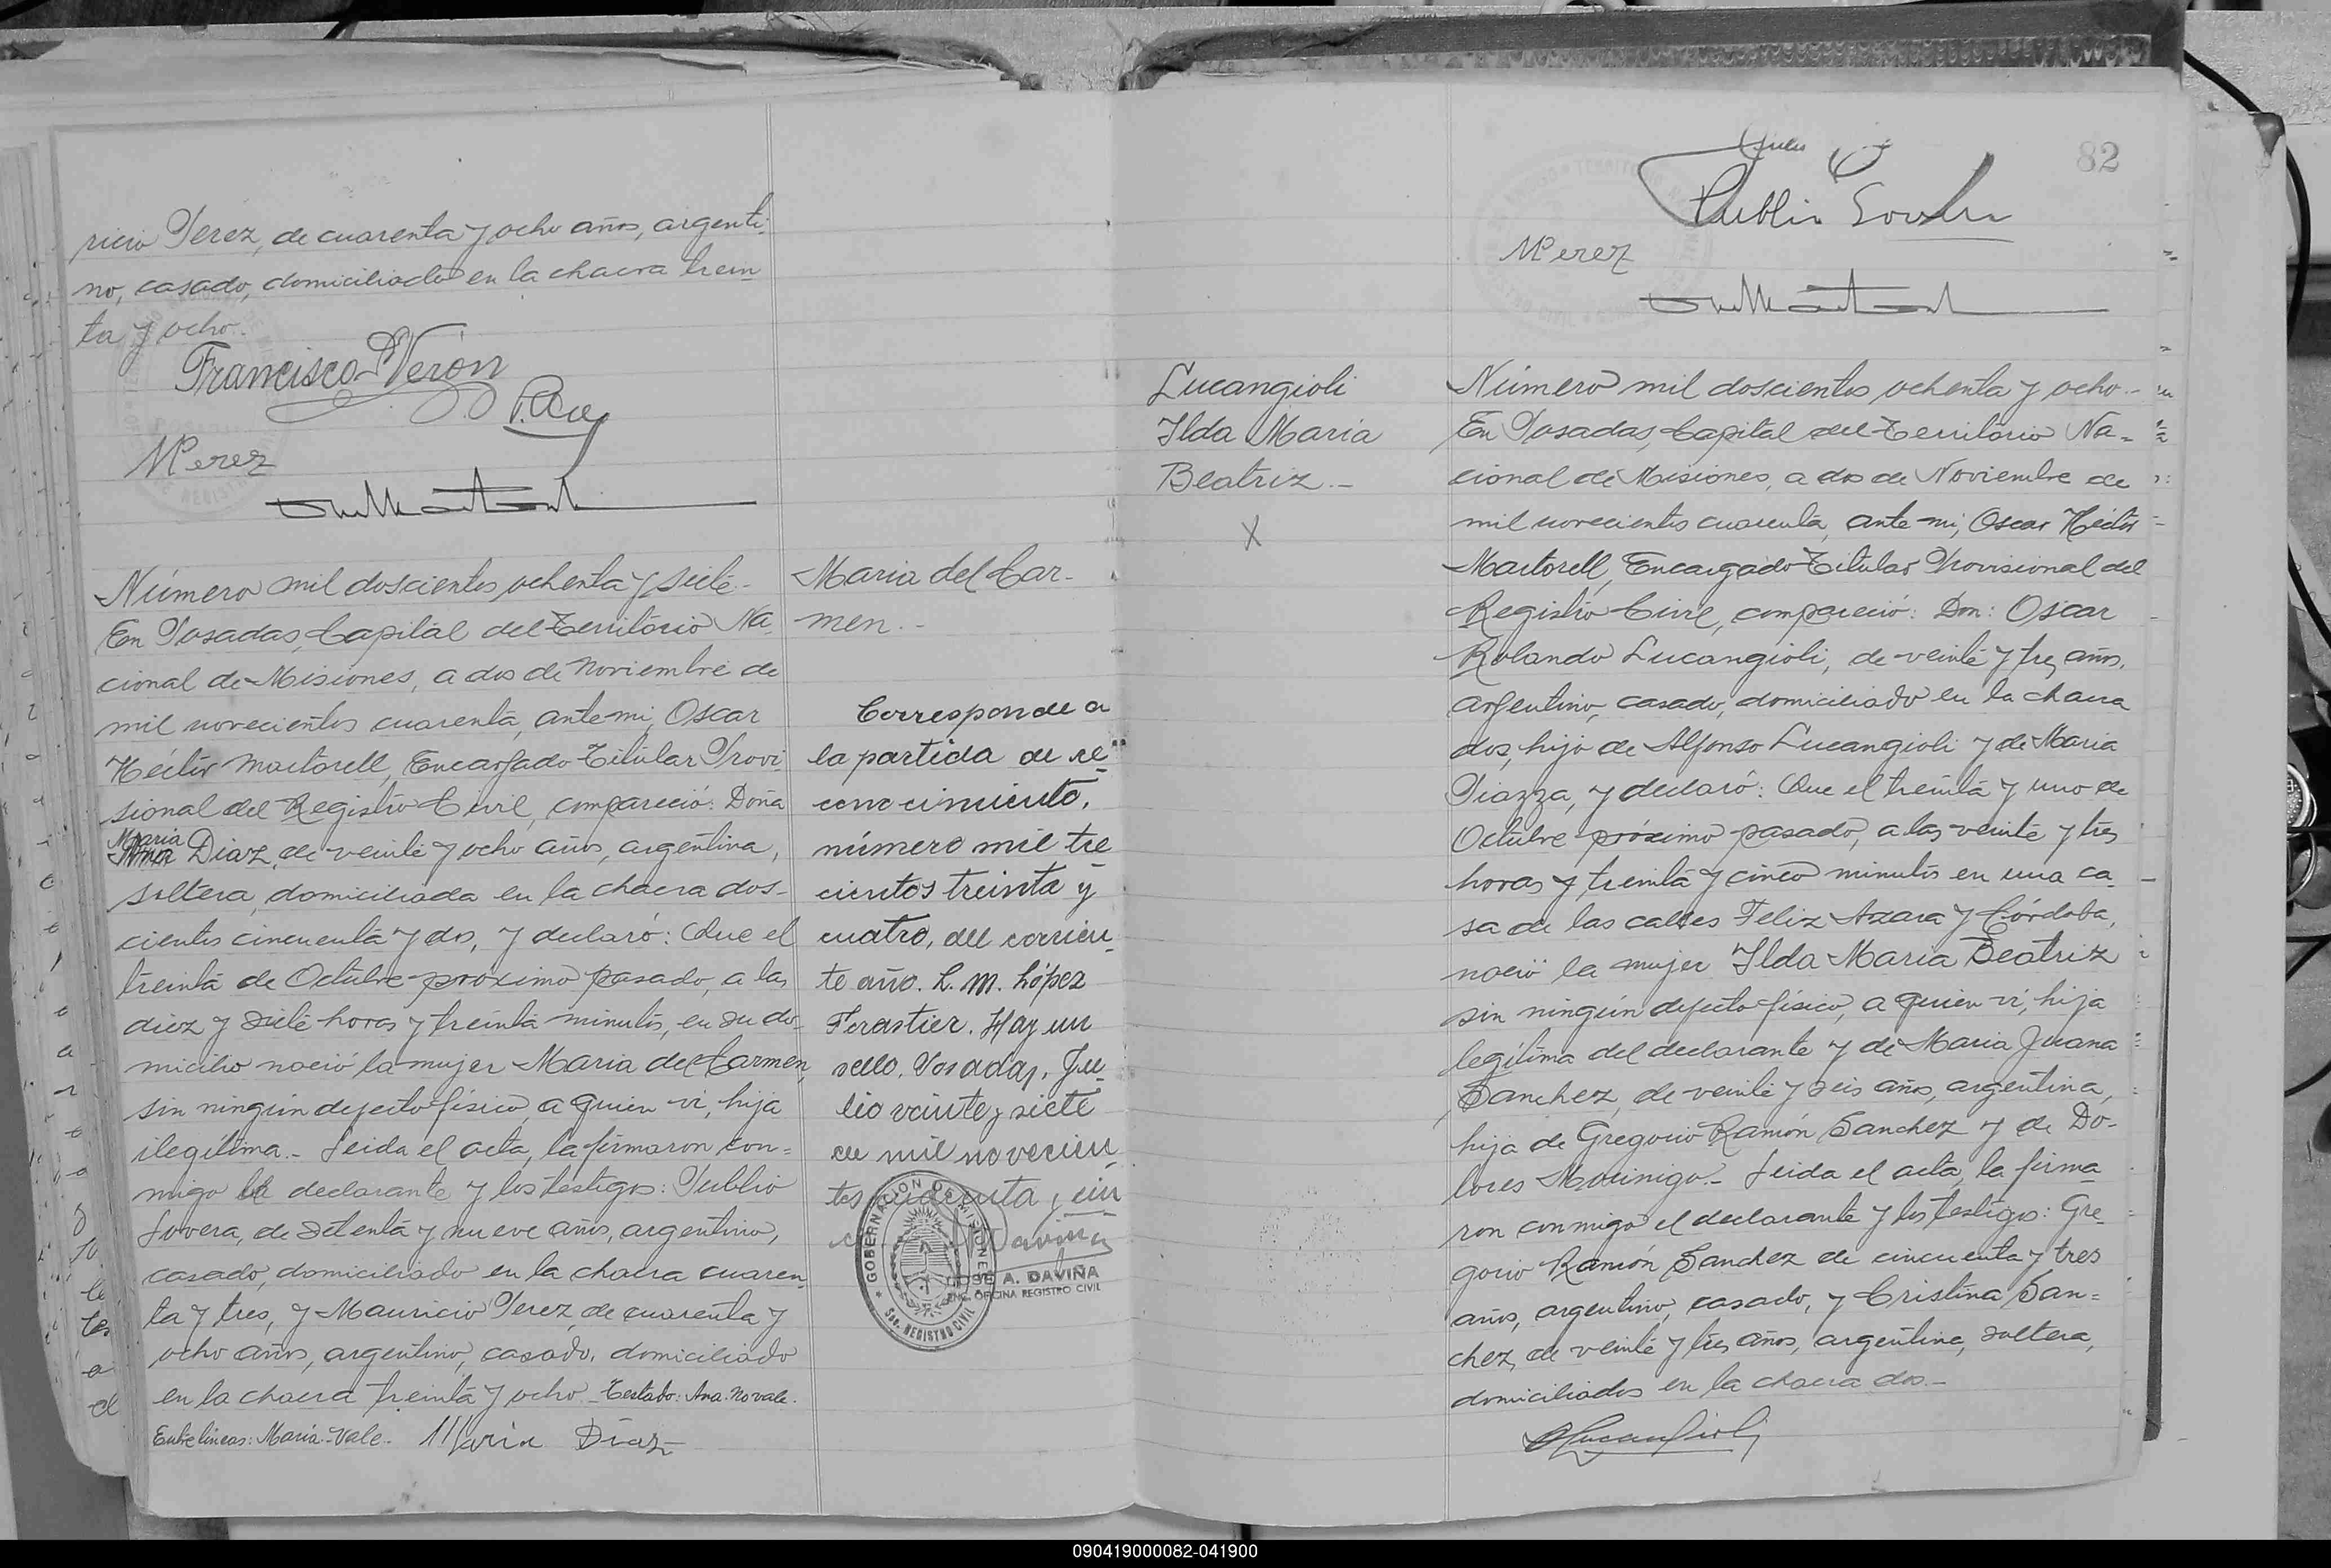 ricio Perez, de cuarenta y ocho años, argenti-
no, casado, domiciliado en la chacra trein
ta y ocho.
Francisco Verón
MPerez
Número mil doscientos ochenta y siete.-
En Posadas, Capital del Territorio Na-
cional de Misiones, a dos de Noviembre de
mil novecientos cuarenta, ante mi, Oscar
Héctor Martorell, Encargado Titular Provi-
sional del Registro Civil, compareció: Doña
Maria
Diaz, de veinte y ocho años, argentina,
soltera, domiciliada en la chacra dos-
cientos cincuenta y dos, y declaró: Que el
treinta de Octubre próximo pasado, a las
diez y siete horas y treinta minutos, en su do-
micilio nació la mujer Maria del Carmen,
sin ningún defecto físico, a quien vi, hija
ilegítima.- Leida el acta, la firmaron con=
migo la declarante y los testigos: Publio
Lovera, de setenta y nueve años, argentino,
casado, domiciliado en la chacra cuaren-
ta y tres, y Mauricio Perez, de cuarenta y
ocho años, argentino, casado, domiciliado
en la chacra treinta y ocho.- Testado: Ana. No vale.
Entre líneas: Maria.-Vale.- Maria Diaz
Maria del Car-
men.-
Corresponde a
la partida de re-
conocimiento,
número mil tre
cientos treinta y
cuatro, del corrien-
te año. L. M. López
Ferastier. Hay un
sello. Posadas, Ju-
lio veinte y siete
de mil novecien-
tos cuarenta y cin
GOBERNACION DE MISIONES
Sec. REGISTRO CIVIL
JOSE A. DAVIÑA
ENC. OFICINA REGISTRO CIVIL
82
Publio Lovera
MPerez
Lucangioli
Ilda Maria
Beatriz.-
X
Número mil doscientos ochenta y ocho.-
En Posadas, Capital del Territorio Na=
cional de Misiones, a dos de Noviembre de
mil novecientos cuarenta, ante mi, Oscar Héctor
Martorell, Encargado Titular Provisional del
Registro Civil, compareció: Don: Oscar
Rolando Lucangioli, de veinte y tres años,
argentino, casado, domiciliado en la chacra
dos, hijo de Alfonso Lucangioli y de Maria
Piazza, y declaró: Que el treinta y uno de
Octubre próximo pasado, a las veinte y tres
horas y treinta y cinco minutos en una ca-
sa de las calles Feliz Azara y Córdoba,
nació la mujer Ilda Maria Beatriz
sin ningún defecto físico, a quien vi, hija
legítima del declarante y de Maria Juana
Sanchez, de veinte y seis años, argentina,
hija de Gregorio Ramón Sanchez y de Do-
lores Morinigo.- Leida el acta, la firma
ron conmigo el declarante y los testigos: Gre-
gorio Ramón Sanchez de cincuenta y tres
años, argentino, casado, y Cristina San=
chez, de veinte y tres años, argentina, soltera,
domiciliados en la chacra dos.-
090419000082-041900